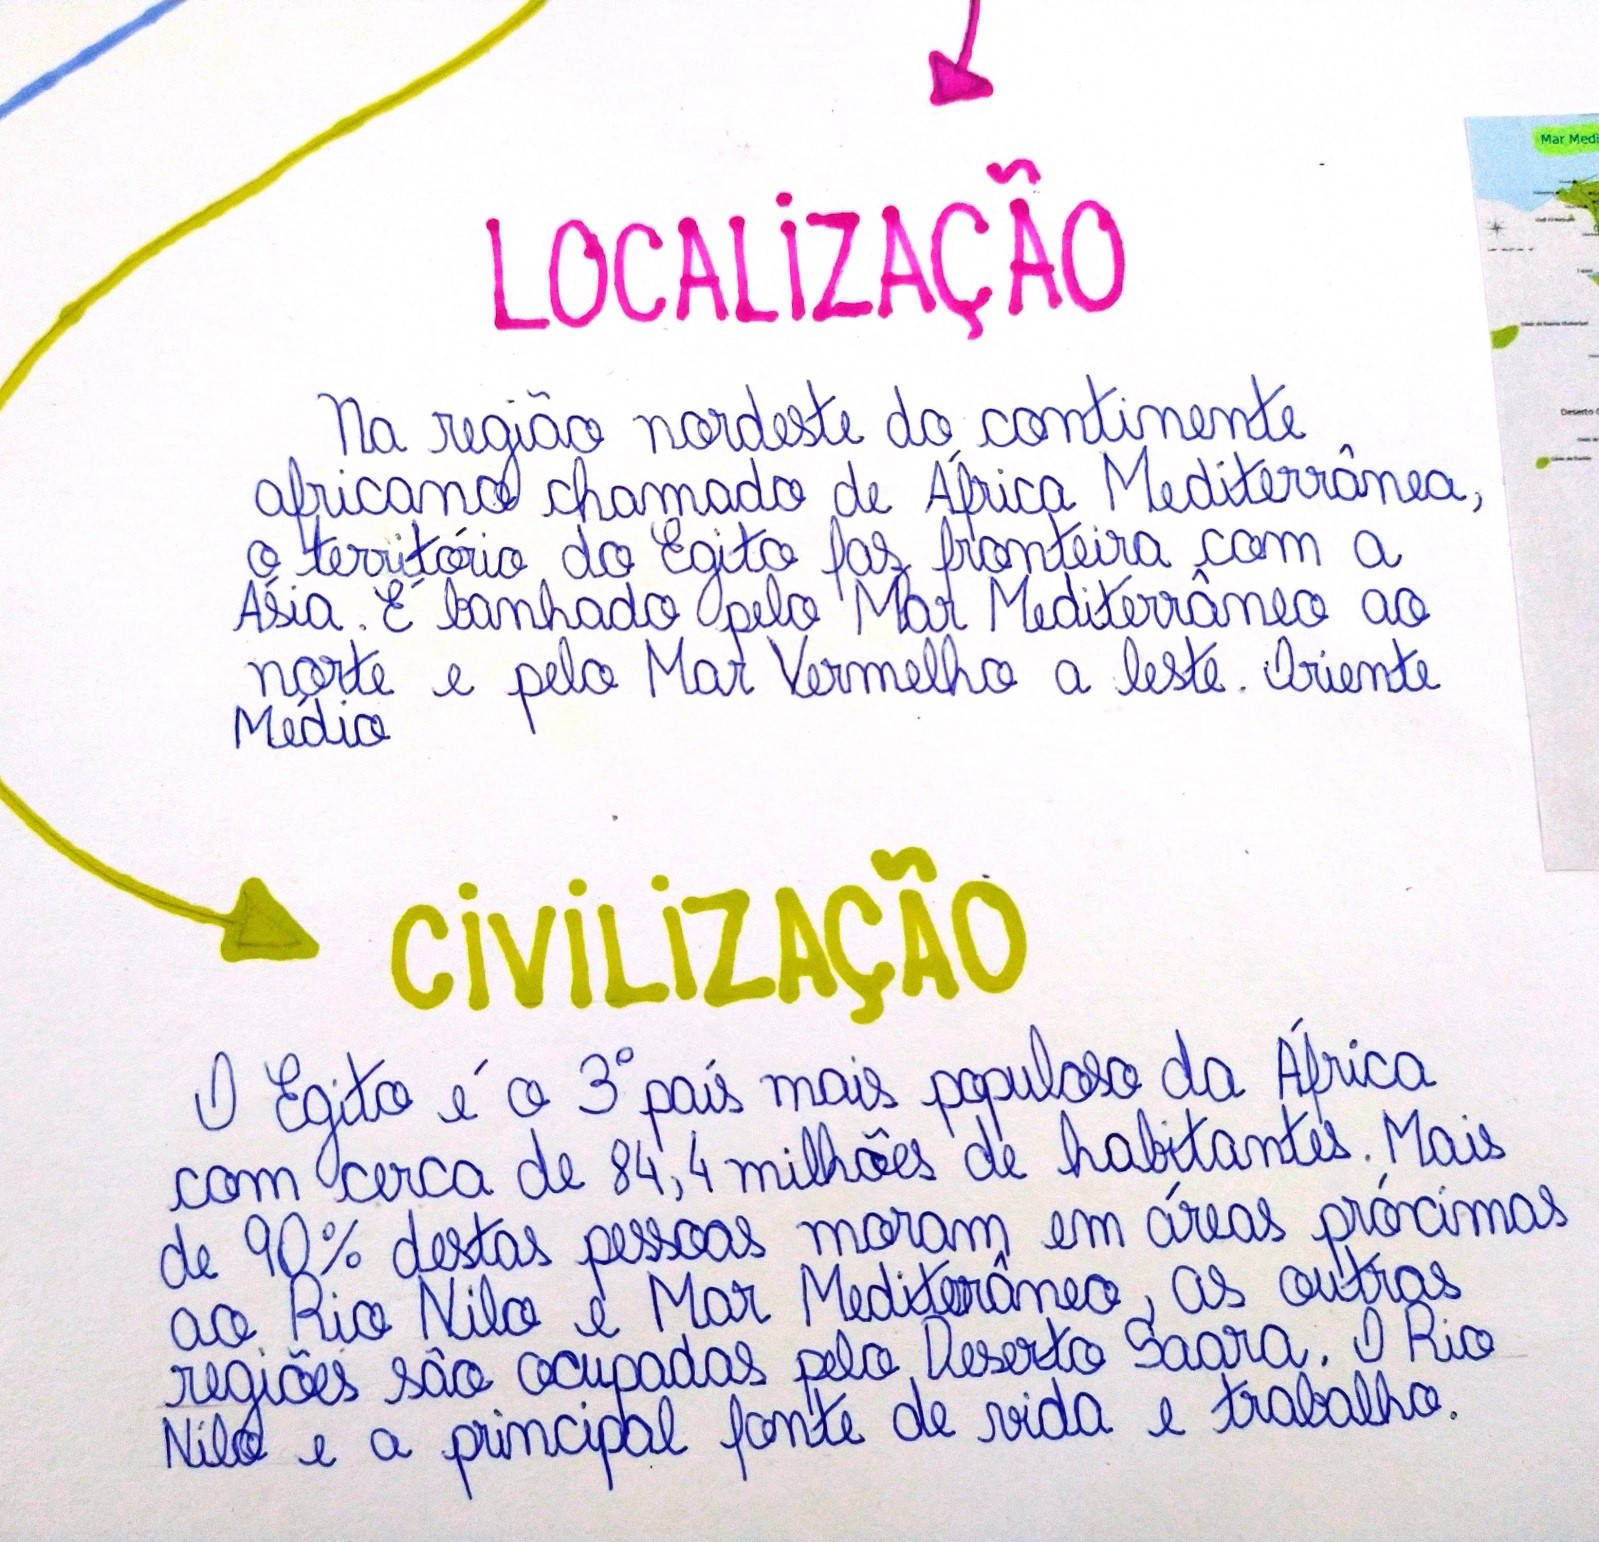 LOCALIZAÇÃO
Mar Medi
Na região nordeste do continente
africano chamado de África Mediterrânea,
o território do Egito faz fronteira com a
Ásia. É banhado pelo Mar Mediterrâneo ao
norte e pelo Mar Vermelho a leste. Oriente
Médio
Deserto
CIVILIZAÇÃO
O Egito é o 3° país mais populoso da África
com cerca de 84,4 milhões de habitantes. Mais
de 90% destas pessoas moram em áreas próximas
ao Rio Nilo e Mar Mediterrâneo, as outras
regiões são ocupadas pelo Deserto Saara. O Rio
Nilo e a principal fonte de vida e trabalho.